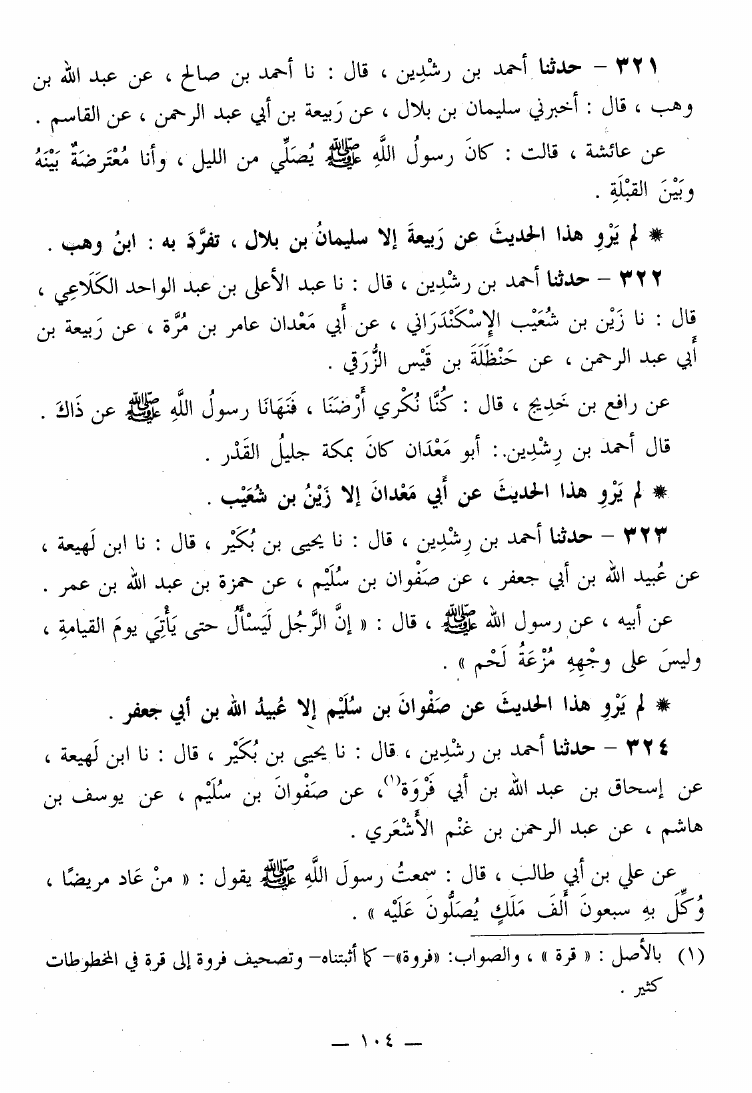 ٣٢١ – حدثنا أحمد بن رشْدِين ، قال : نا أحمد بن صالح ، عن عبد الله بن
وهب ، قال : أخبرني سليمان بن بلال ، عن رَبيعة بن أبي عبد الرحمن ، عن القاسم .
عن عائشة ، قالت : كانَ رسولُ اللَّهِ ﷺ يُصَلِّي من الليل ، وأنا مُعْتَرضَةٌ بَيْنَهُ
وبَيْنَ القبْلَةِ .
* لم يَرْوِ هذا الحديثَ عن رَبيعةَ إلا سليمانُ بن بلال ، تفرَّدَ به : ابنُ وهب .
٣٢٢ – حدثنا أحمد بن رشْدِين ، قال : نا عبد الأعلى بن عبد الواحد الكَلَاعِي ،
قال : نا زَيْن بن شُعَيْب الإسْكَنْدَراني ، عن أَبي مَعْدان عامر بن مُرَّة ، عن رَبيعة بن
أَبي عبد الرحمن ، عن حَنْظَلَةَ بن قَيْس الزُّرَقي .
عن رافع بن خَدِيج ، قال : كُنَّا نُكْري أَرْضَنَا ، فَنَهَانَا رسولُ اللَّهِ ﷺ عن ذَاكَ .
قال أحمد بن رِشْدِين : أبو مَعْدَان كانَ بمكة جليلُ القَدْر .
* لم يَرْوِ هذا الحديثَ عن أَبي مَعْدانَ إلا زَيْنُ بن شُعَيْب .
٣٢٣ – حدثنا أحمد بن رِشْدِين ، قال : نا يحيى بن بُكَيْر ، قال : نا ابن لَهيعة ،
عن عُبيد الله بن أبي جعفر ، عن صَفْوان بن سُلَيْم ، عن حمزة بن عبد الله بن عمر .
عن أبيه ، عن رسول الله ﷺ ، قال : « إنَّ الرَّجُل لَيَسْأَلُ حتى يَأْتِيَ يومَ القيامةِ ،
وليسَ على وجْهِهِ مُزْعَةُ لَحْم » .
* لم يَرْوِ هذا الحديثَ عن صَفْوانَ بن سُلَيْم إلا عُبيدُ الله بن أبي جعفر .
٣٢٤ – حدثنا أحمد بن رشْدِين ، قال : نا يحيى بن بُكَيْر ، قال : نا ابن لَهيعة ،
عن إسحاق بن عبد الله بن أبي فَرْوَة(١)، عن صَفْوانَ بن سُلَيْم ، عن يوسف بن
هاشم ، عن عبد الرحمن بن غنْم الأَشْعَري .
عن علي بن أبي طالب ، قال : سمعتُ رسولَ اللَّهِ ﷺ يقول : « منْ عَاد مريضًا ،
وُكِّلَ بِهِ سبعونَ أَلفَ مَلَكٍ يُصَلُّونَ عَلَيْه » .
(١) بالأصل : « قرة » ، والصواب: «فروة»– كما أثبتناه– وتصحيف فروة إلى قرة في المخطوطات
كثير .
— ١٠٤ —